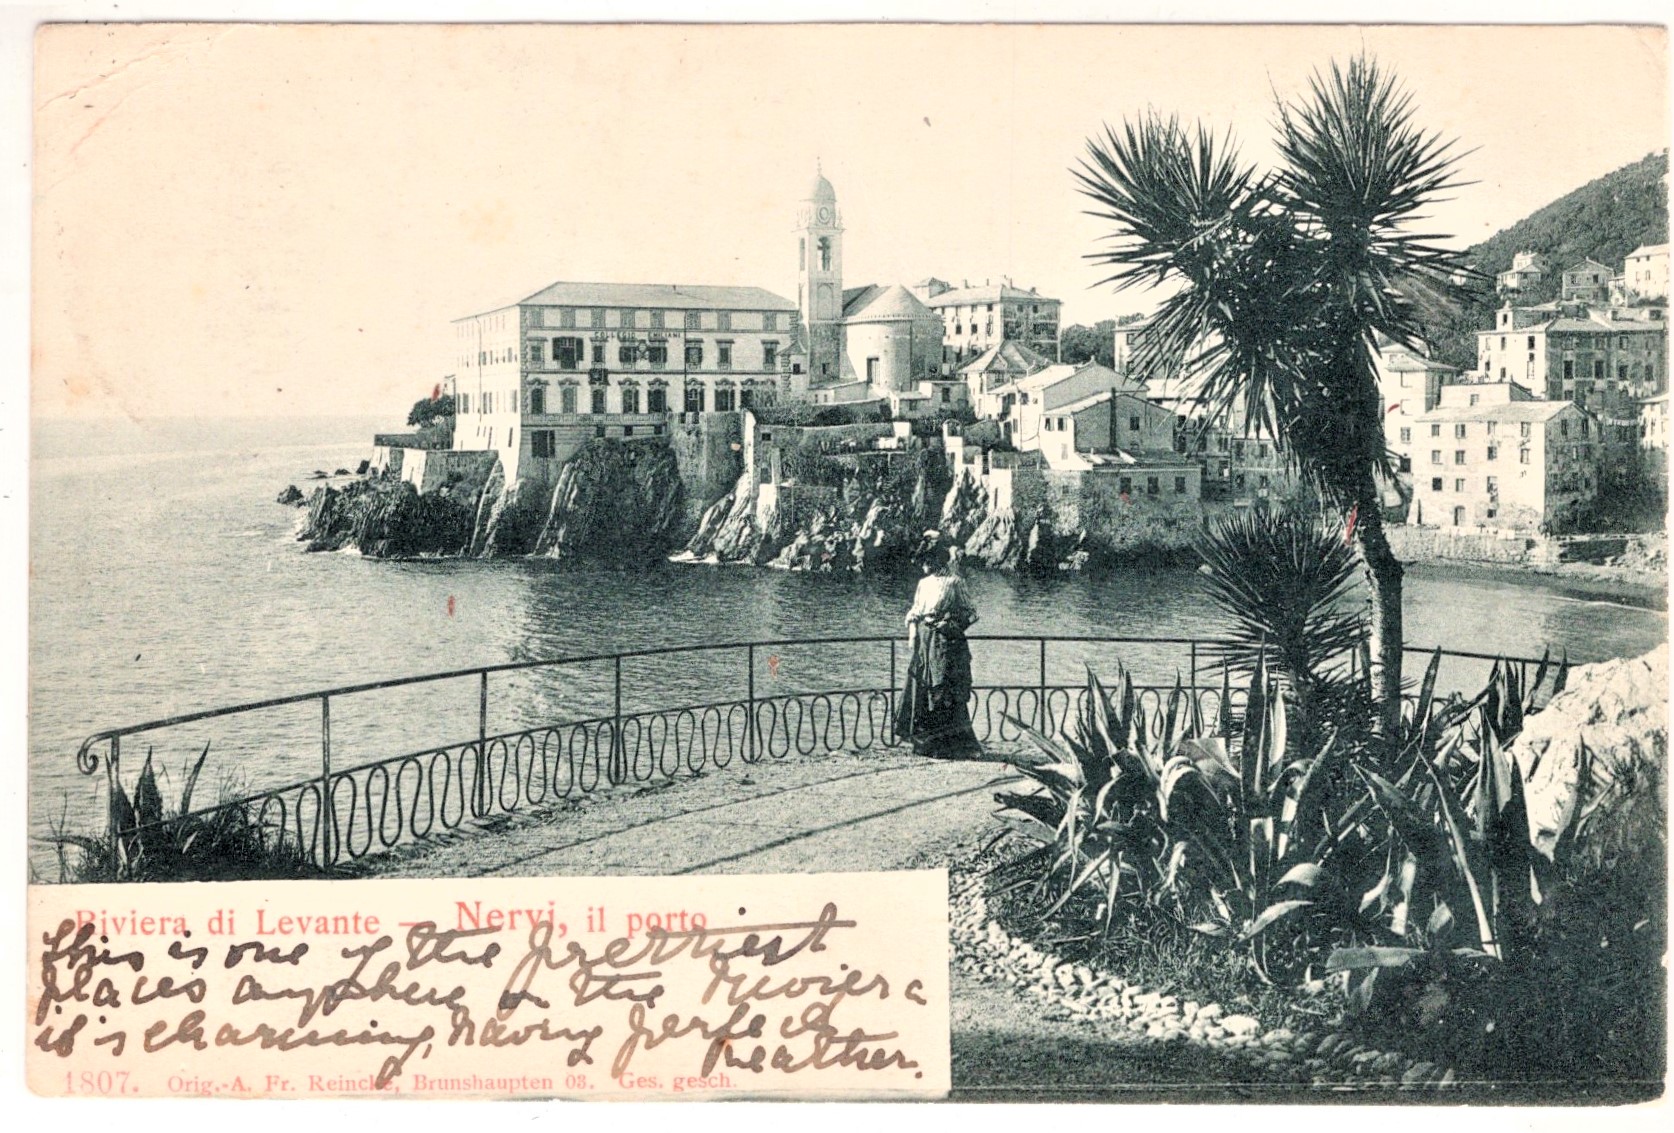 COLLEGIO EMILIANI
Riviera di Levante — Nervi, il porto
This is one of the prettiest
places anywhere on the Riviera
it is charming, having perfect
weather.
1807. Orig.-A. Fr. Reincke, Brunshaupten 03. Ges. gesch.